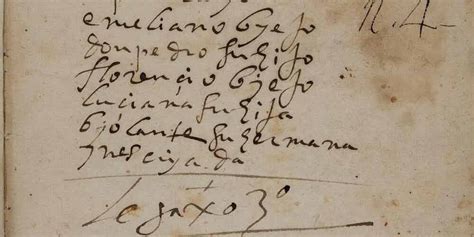 emiliano byejo
don pedro su hijo
florençio byejo
luciana su hija
byolante su hermana
ynes ciya da
legaxo 3º
n. 4